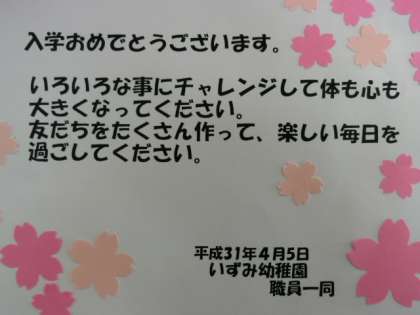 入学おめでとうございます。
いろいろな事にチャレンジして体も心も
大きくなってください。
友だちをたくさん作って、楽しい毎日を
過ごしてください。
平成31年4月5日
いずみ幼稚園
職員一同